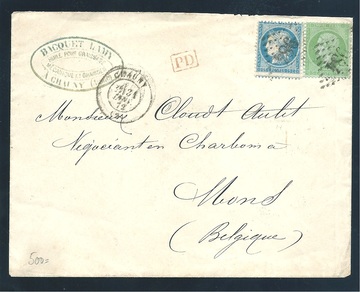 BACQUET LAMY
A CHAUNY
CHAUNY
PD
Monsieur Cloudt Aulit
Négociant en Charbons
Mons
(Belgique)
500=